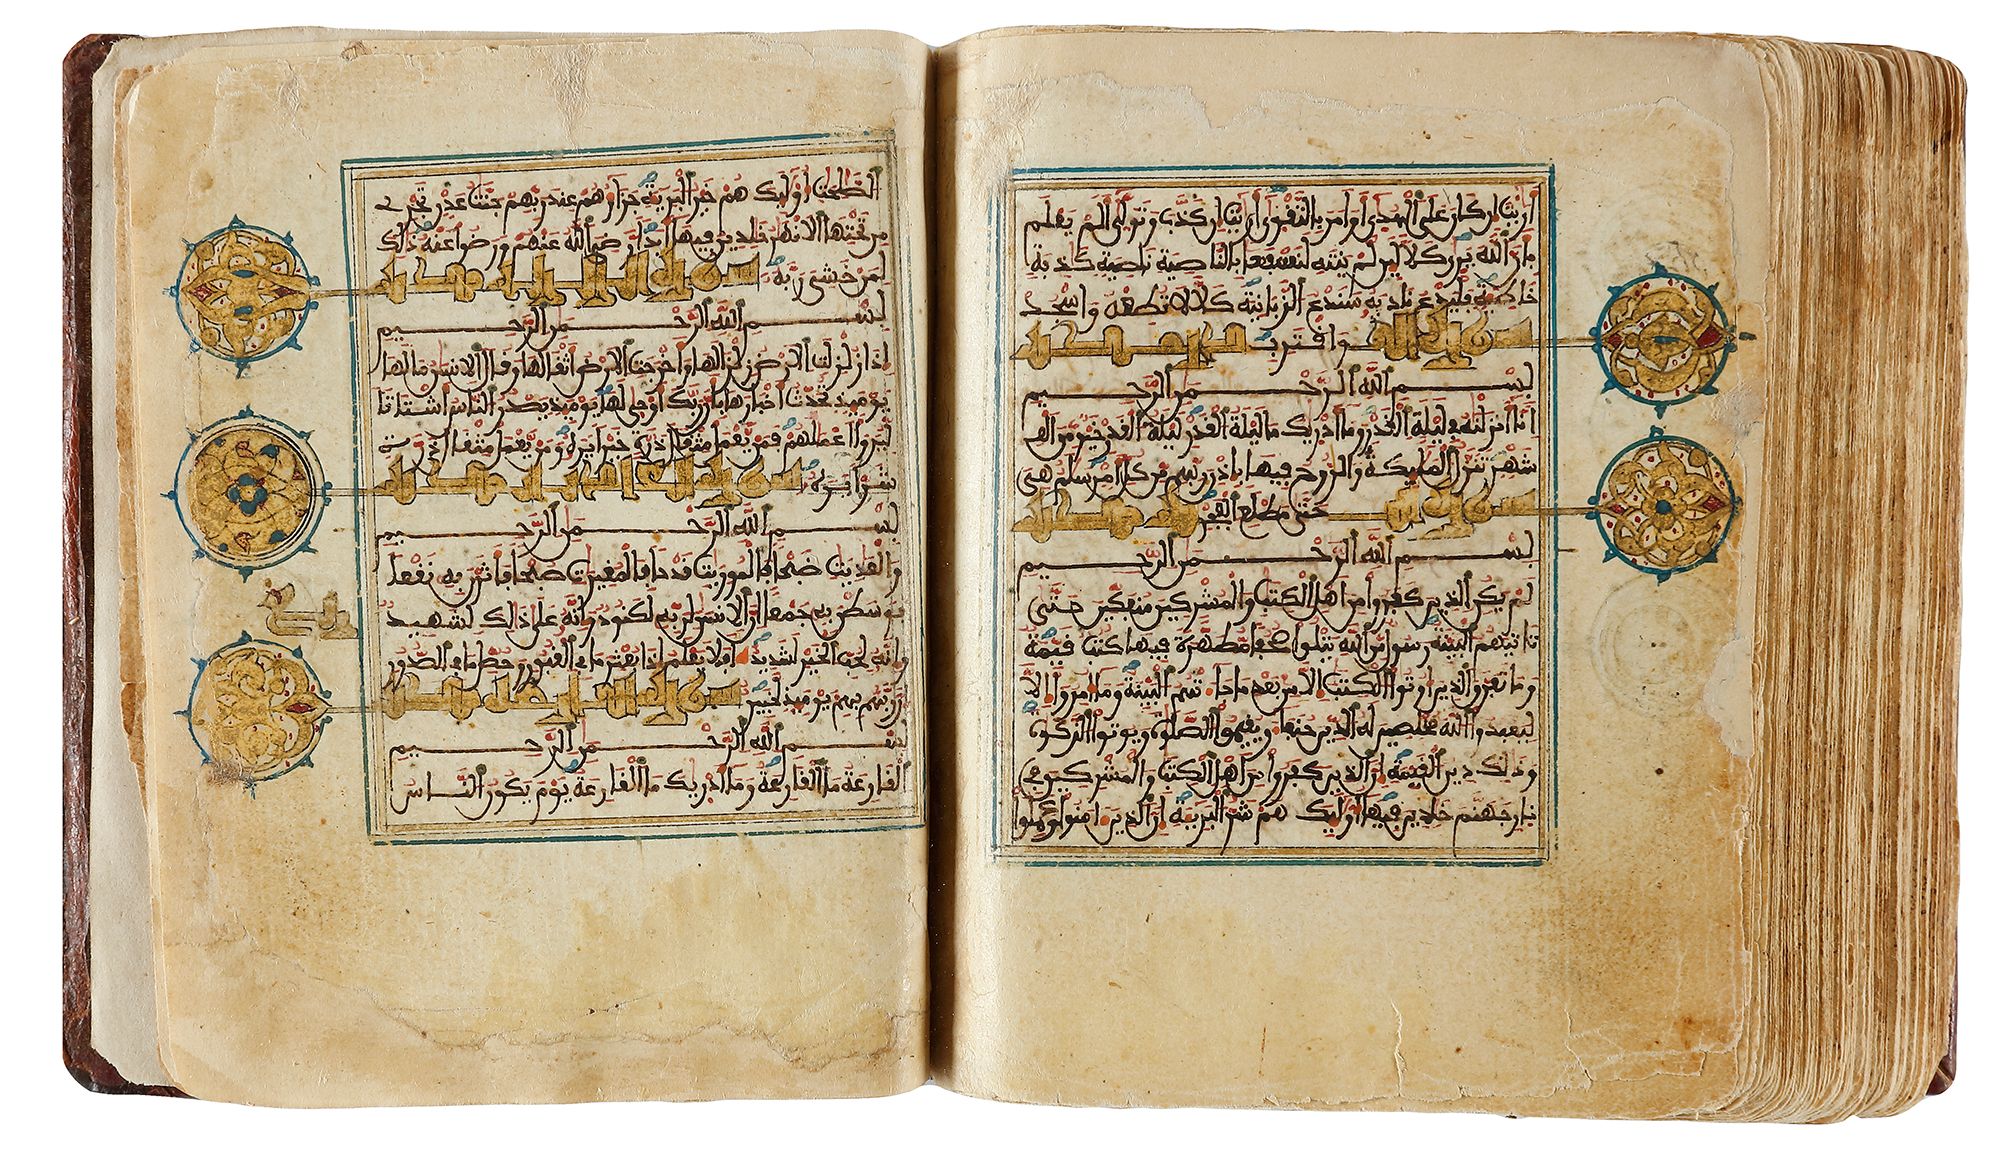 أريت إن كان على الهدى أو أمر بالتقوى أريت إن كذب وتولى ألم يعلم
بأن الله يرى كلا لين لم ينته لنسفعا بالناصية ناصية كذبة
خاطية فليدع ناديه سندع الزبانية كلا لا تطعه واسجد
سورة القدر واقترب
بسم الله الرحمن الرحيم
إنا أنزلنه في ليلة القدر وما أدريك ما ليلة القدر ليلة القدر خير من ألف
شهر تنزل المليكة والروح فيها بإذن ربهم من كل أمر سلم هي
حتى مطلع الفجر
بسم الله الرحمن الرحيم
لم يكن الذين كفروا من أهل الكتب والمشركين منفكين حتى
تاتيهم البينة رسول من الله يتلوا صحفا مطهرة فيها كتب قيمة
وما تفرق الذين أوتوا الكتب إلا من بعد ما جاءتهم البينة وما أمروا إلا
ليعبدوا الله مخلصين له الدين حنفاء ويقيموا الصلوة ويوتوا الزكوة
وذلك دين القيمة إن الذين كفروا من أهل الكتب والمشركين في
نار جهنم خلدين فيها أوليك هم شر البرية إن الذين ءامنوا وعملوا
الصلحت أوليك هم خير البرية جزاؤهم عند ربهم جنت عدن تجري
من تحتها الانهر خلدين فيها أبدا رضي الله عنهم ورضوا عنه ذلك
لمن خشي ربه سورة الزلزلة
بسم الله الرحمن الرحيم
إذا زلزلت الارض زلزالها وأخرجت الارض أثقالها وقال الانسن ما لها
يوميذ تحدث أخبارها بأن ربك أوحى لها يوميذ يصدر الناس أشتاتا
ليروا أعملهم فمن يعمل مثقال ذرة خيرا يره ومن يعمل مثقال ذرة
شرا يره سورة العديت
بسم الله الرحمن الرحيم
والعديت ضبحا فالموريت قدحا فالمغيرت صبحا فأثرن به نقعا
فوسطن به جمعا إن الانسن لربه لكنود وإنه على ذلك لشهيد
وإنه لحب الخير لشديد أفلا يعلم إذا بعثر ما في القبور وحصل ما في الصدور
إن ربهم بهم يوميذ لخبير
بسم الله الرحمن الرحيم
القارعة ما القارعة وما أدريك ما القارعة يوم يكون الناس